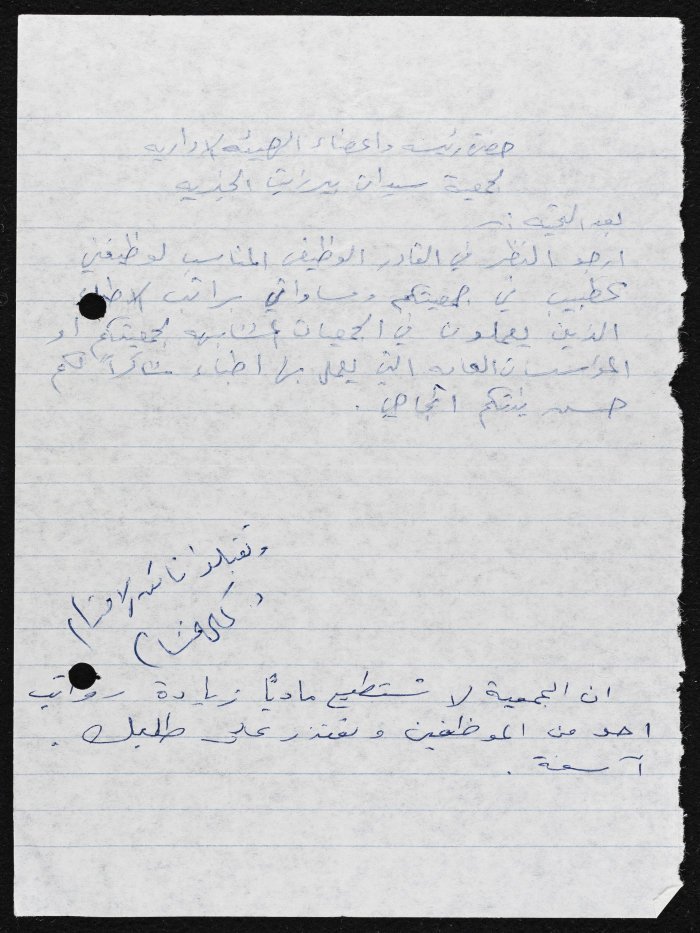 حضرة رئيسة واعضاء الهيئه الاداريه
لجمعية سيدات بيرزيت الخيريه
بعد التحيه :-
ارجو النظر في الكادر الوظيفي المناسب لوظيفتي
كطبيب في جمعيتكم ومساواتي براتب الاطباء
الذين يعملون في الجمعيات المشابهه لجمعيتكم أو
المؤسسات العامه التي يعمل بها اطباء شاكراً لكم
حسن .
وتقبلوا فائق الاحترام
د.
ان الجمعية لا تستطيع ماديًا زيادة رواتب
احد من الموظفين ونعتذر على طلبك .
آسفة .